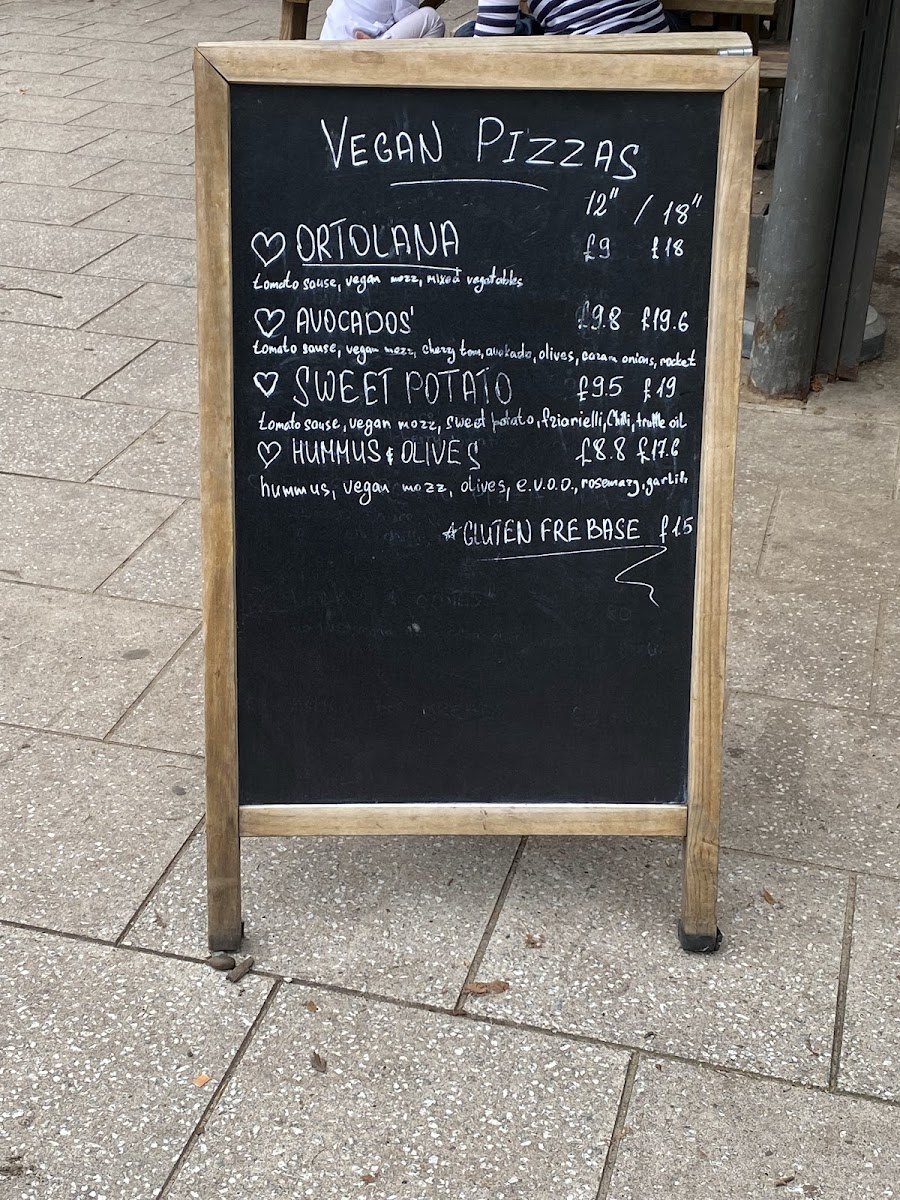 VEGAN PIZZAS
12" / 18"
ORTOLANA £9 £18
tomato sause, vegan mozz, mixed vegetables
AVOCADOS' £9.8 £19.6
tomato sause, vegan mozz, cherry tom, avokado, olives, onions, rocket
SWEET POTATO £9.5 £19
tomato sause, vegan mozz, sweet potato, friarielli, Chili, truffle oil
HUMMUS & OLIVES £8.8 £17.6
hummus, vegan mozz, olives, e.v.o.o., rosemary, garlik
☆GLUTEN FRE BASE £1.5